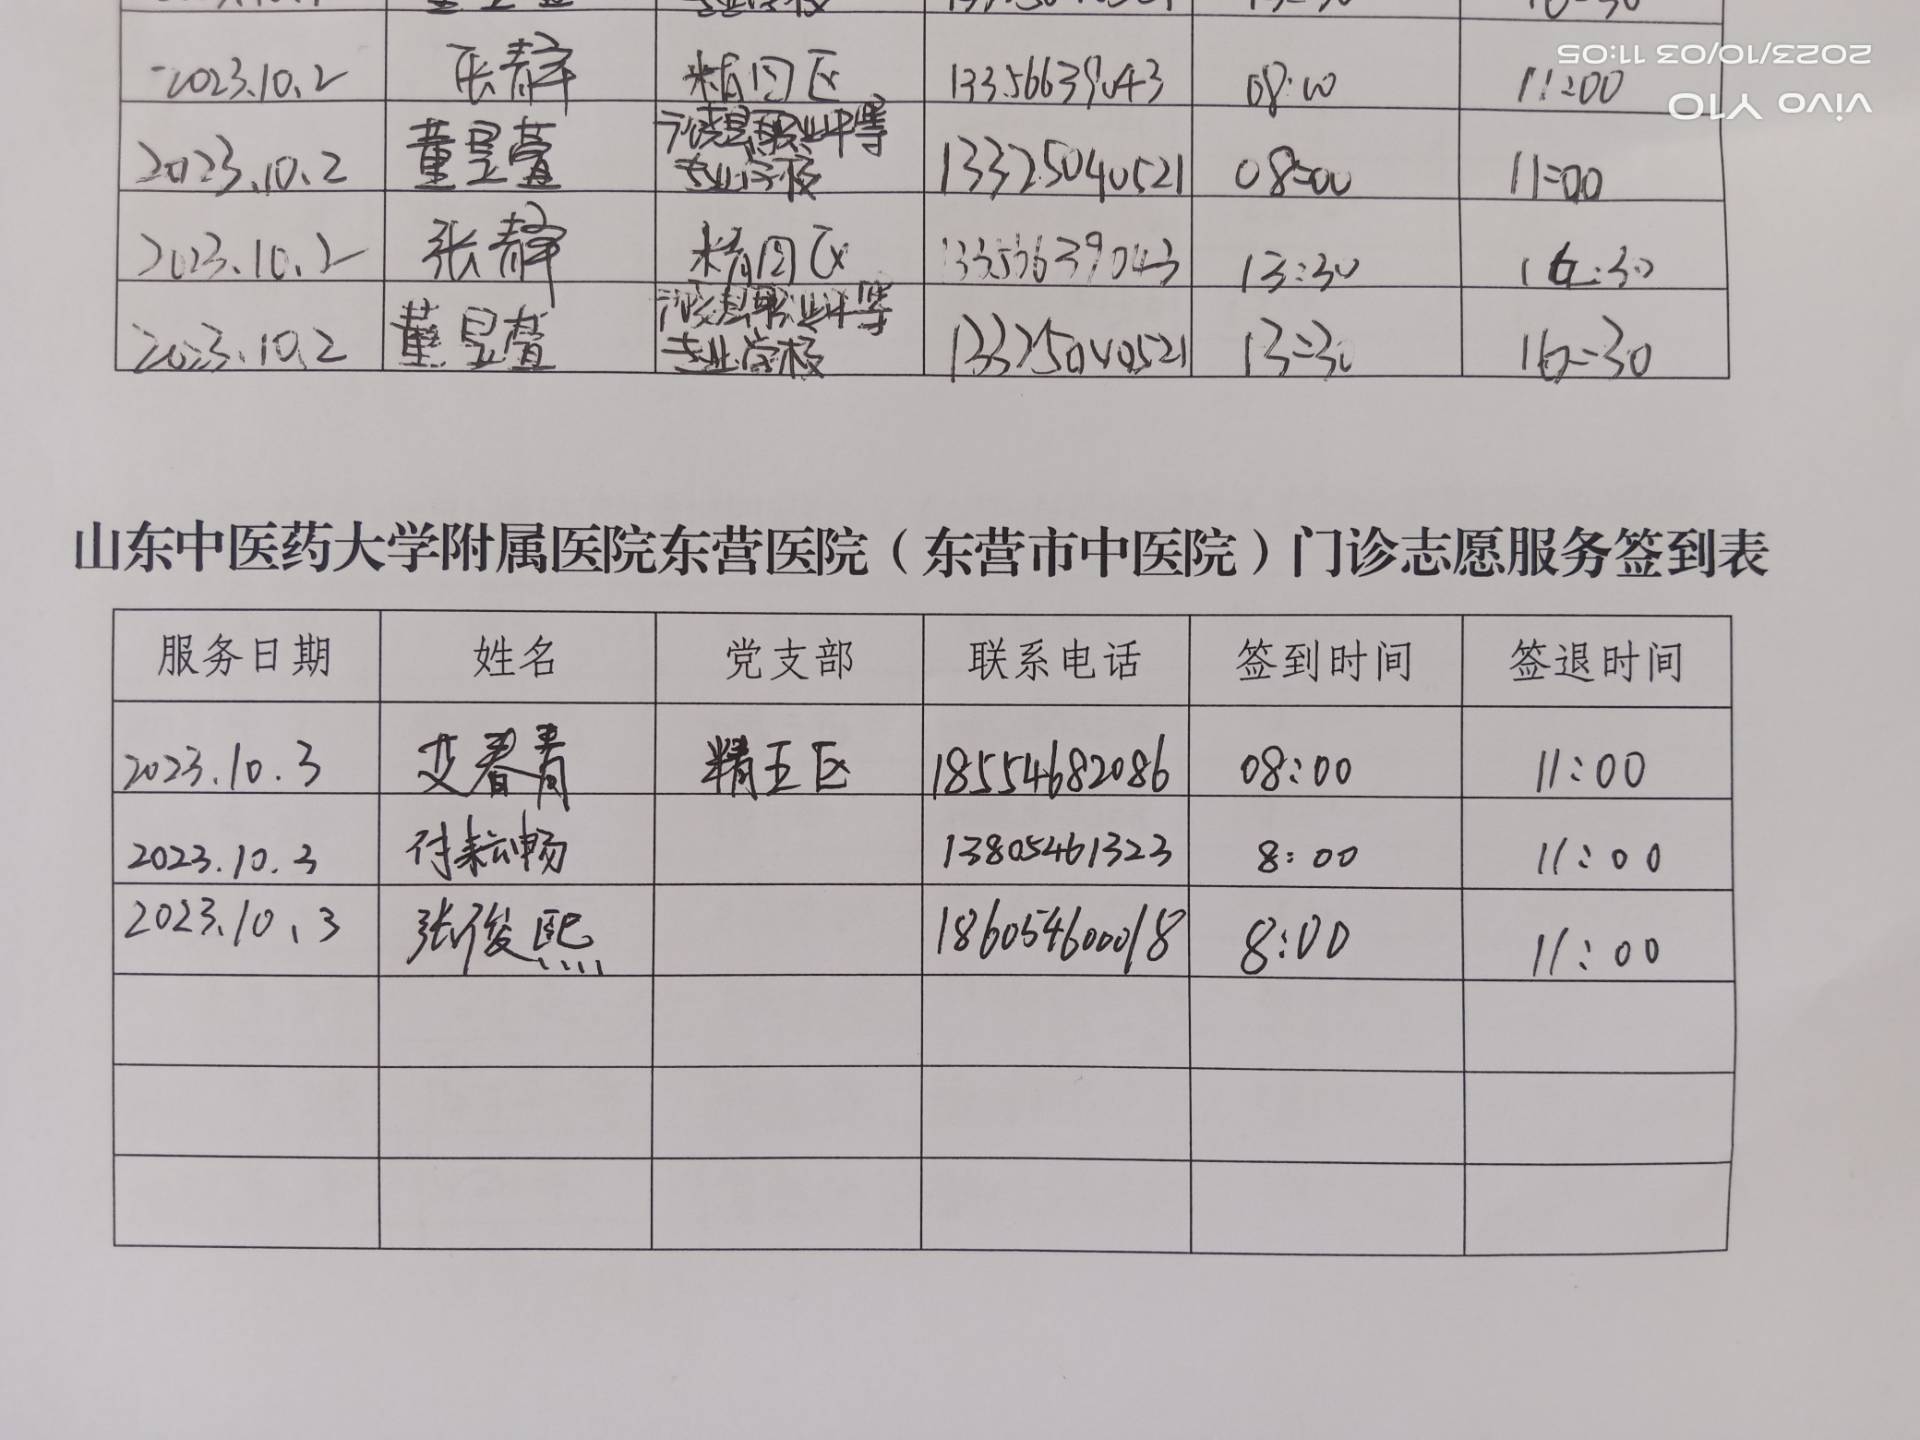 2023.10.2 张静 精图区 13356639043 08:00 11:00
2023.10.2 董昱萱 职业中等 13325040521 08:00 11:00
专业学校
2023.10.2 张静 精图区 13356639043 13:30 16:30
2023.10.2 董昱萱 职业中等 13325040521 13:30 16:30
专业学校
山东中医药大学附属医院东营医院（东营市中医院）门诊志愿服务签到表
服务日期 姓名 党支部 联系电话 签到时间 签退时间
2023.10.3 艾春青 精王区 18554682086 08:00 11:00
2023.10.3 付耘畅 13805461323 8:00 11:00
2023.10.3 张俊熙 18605460018 8:00 11:00
vivo Y10
2023/10/03 11:05